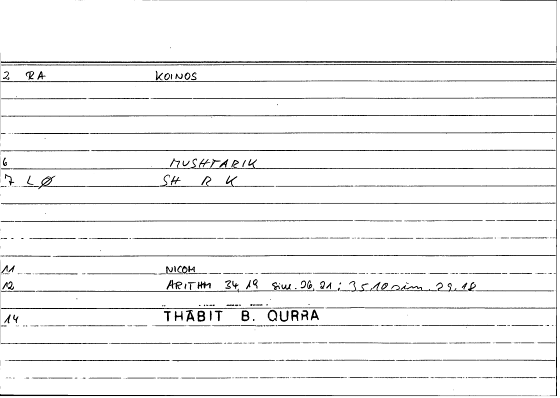 2 RA KOINOS
6 MUSHTARIK
7 LØ SH R K
11 NICOM
12 ARITHM 34,19 sim. 26,21; 35 10 sim. 29,18
14 THĀBIT B. QURRA